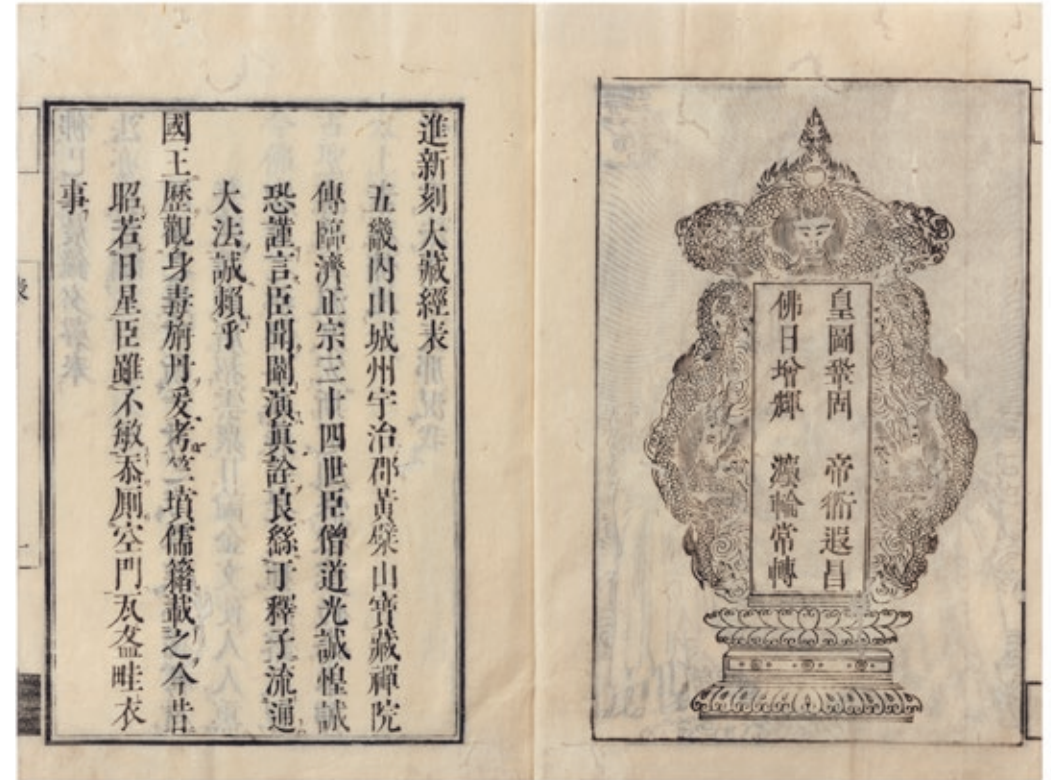 皇圖鞏固　帝衜遐昌
佛日增輝　灋輪常轉
進新刻大藏經表
五畿內山城州宇治郡黃檗山寶藏禪院
傳臨濟正宗三十四世臣僧道光誠惶誠
恐謹言臣聞闡演眞詮良繇于釋子流通
大法誠賴乎
國王歷觀身毒旃丹爰考竺墳儒籍載之今昔
昭若日星臣雖不敏忝廁空門瓦盋畦衣
事